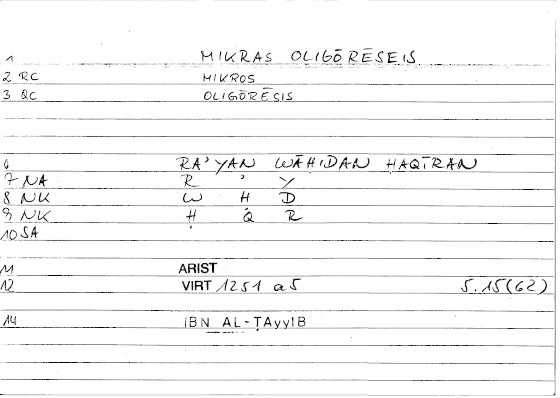 1 MIKRAS OLIGŌRĒSEIS
2 RC MIKROS
3 QC OLIGŌRĒSIS
6 RA'YAN WĀḤIDAN ḤAQĪRAN
7 NA R ' Y
8 NK W Ḥ D
9 NK Ḥ Q R
10 SA
11 ARIST
12 VIRT 1251 a5 5.15(62)
14 IBN AL-ṬAyyIB